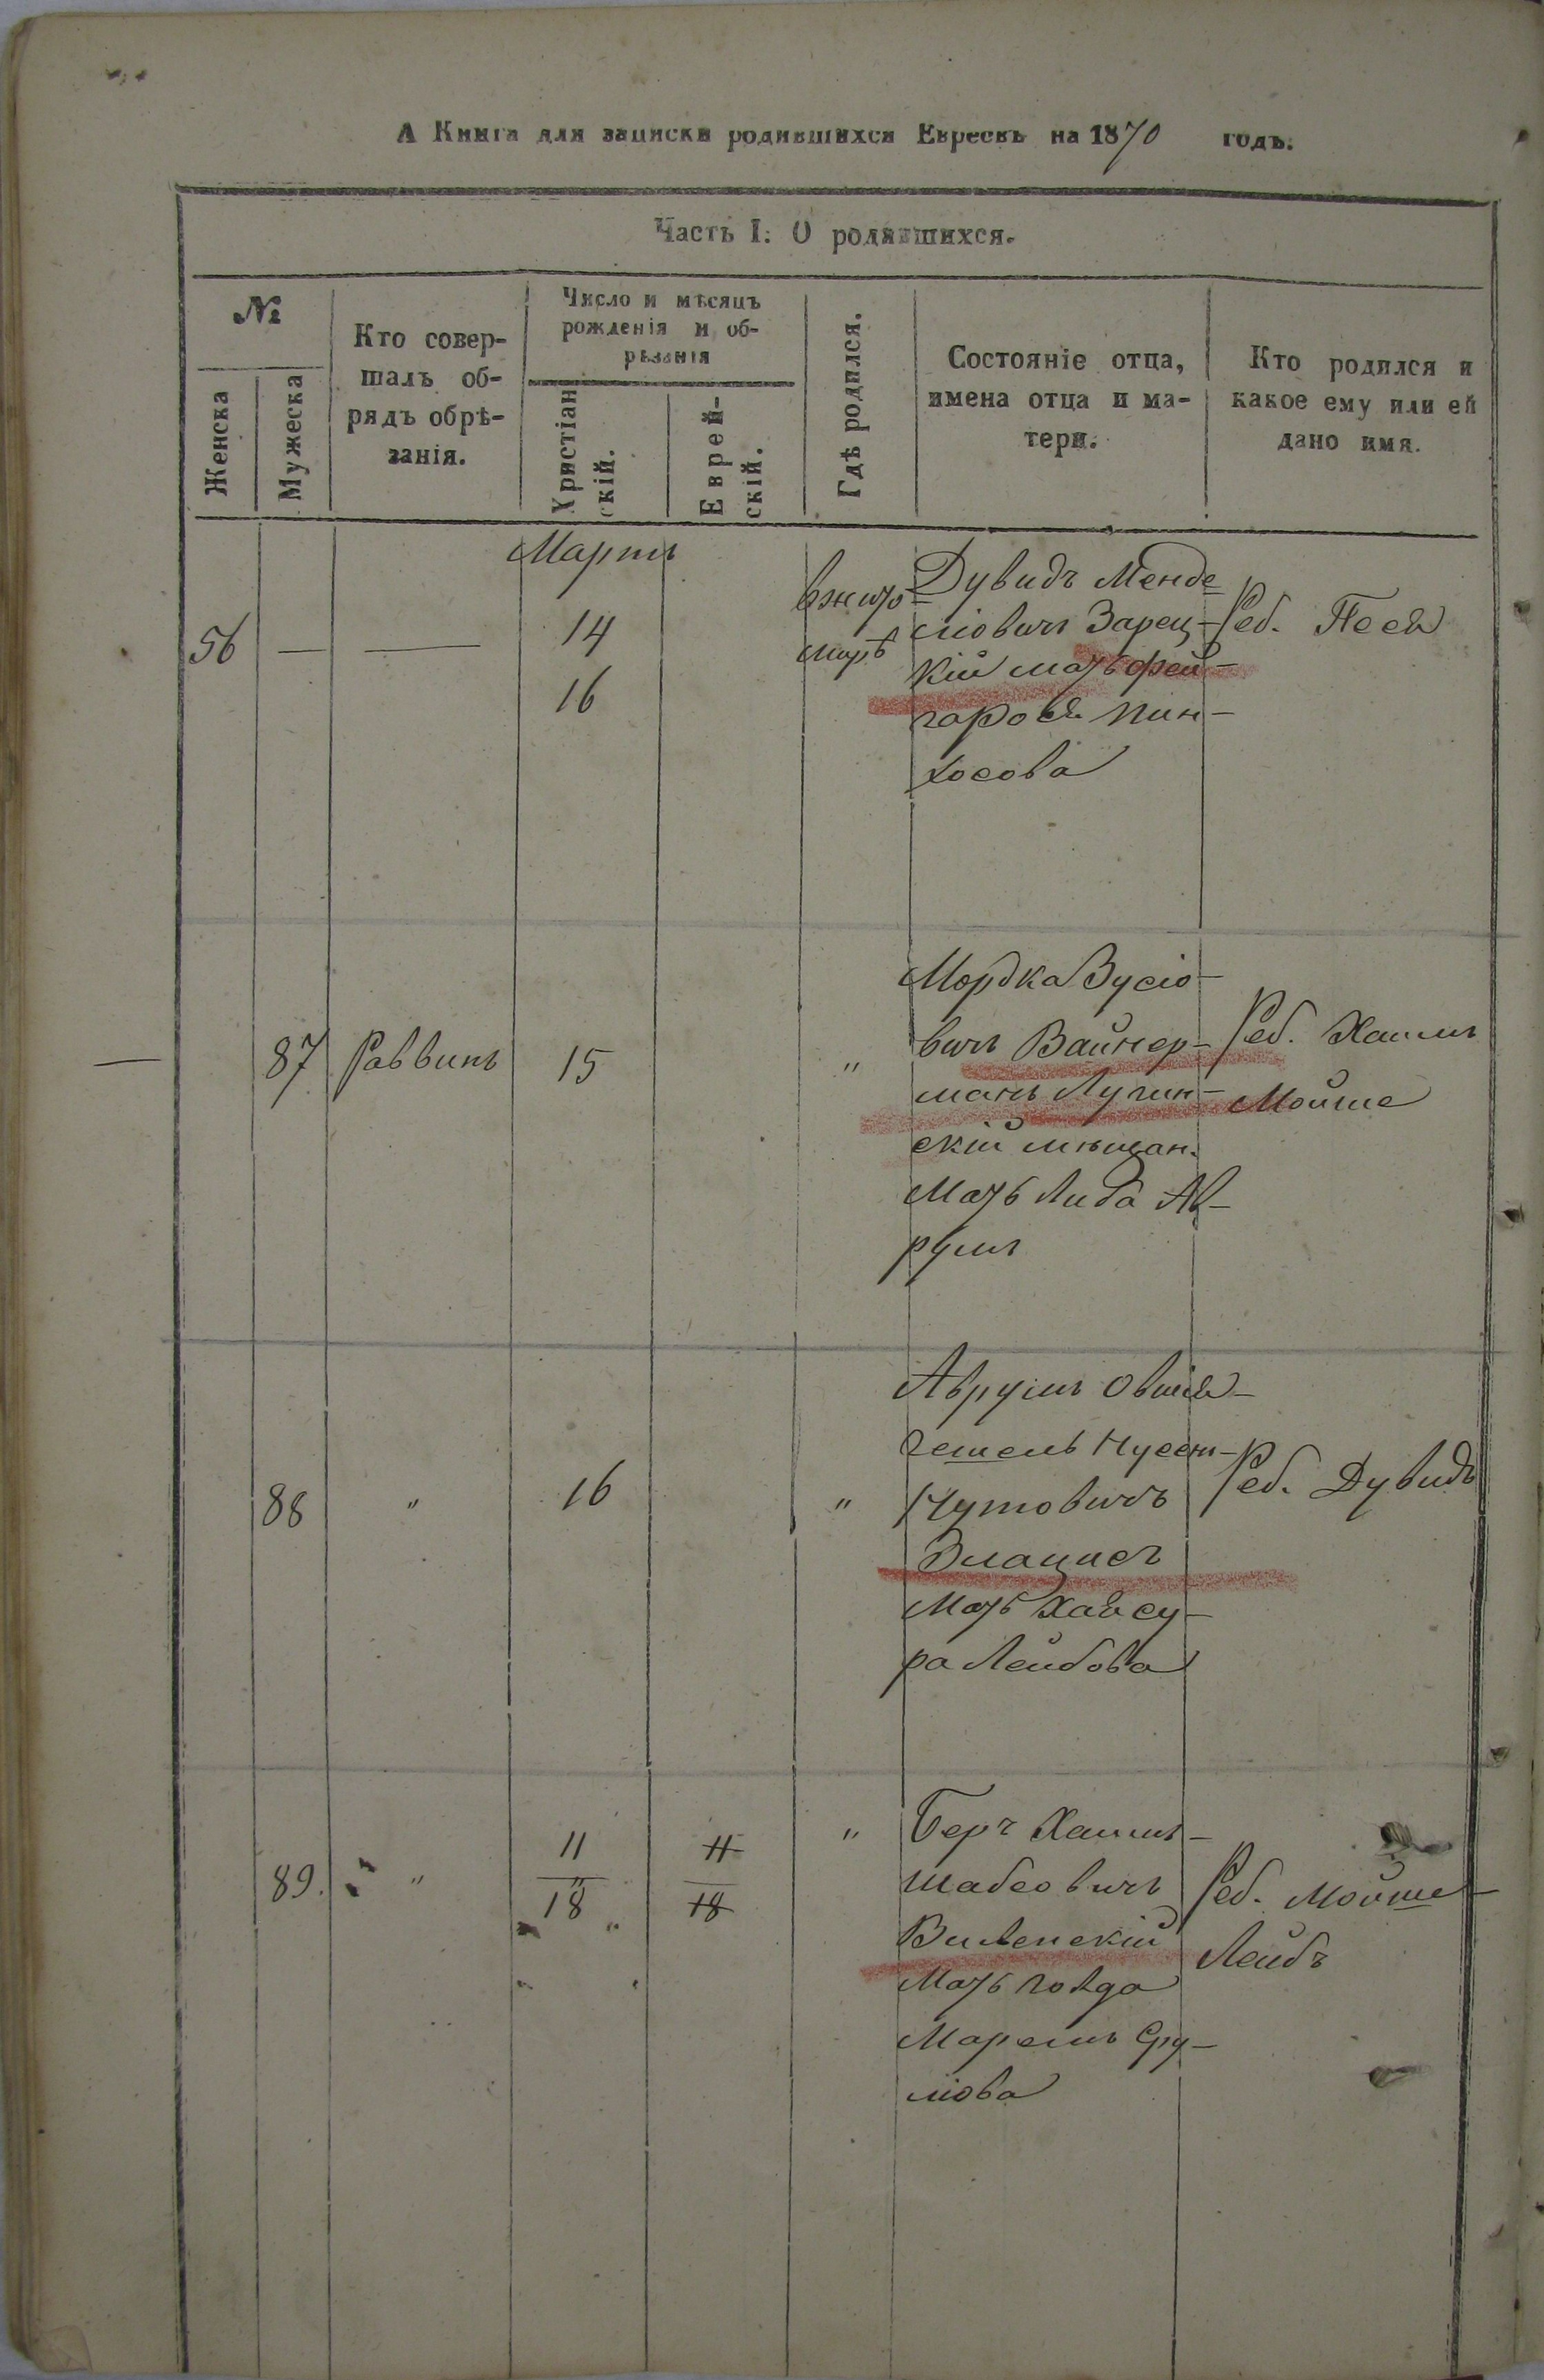 А Книга для записки родившихся Евреевъ на 1870 годъ.
Часть I: О родившихся.
№
Женска
Мужеска
Кто совер-
шалъ об-
рядъ обрѣ-
занія.
Число и мѣсяцъ
рожденія и об-
рѣзанія
Христіан
скій.
Еврей-
скій.
Гдѣ родился.
Состояніе отца,
имена отца и ма-
тери.
Кто родился и
какое ему или ей
дано имя.
Мартъ
56 — —
14
16
вжито
мирѣ
Дувидъ Менде
ліовичъ Зарец-
кій мать фей-
га рося Пин-
хосова
Реб. Песя
—
87 Раввинъ 15 "
Мордка Зусіо-
вичъ Вайнер-
манъ Лугин-
скій мѣщан.
Мать Либа Ав-
румъ
Реб. Хаимъ
Мойше
88 " 16 "
Аврумъ Овшія-
гешель Нусен-
Нутовичъ
Мать Хая су-
ра Лейбова
Реб. Дувидъ
89. "
11
18
11
18
"
Беръ Хаимъ-
шабсовичъ
Виленскій
Мать голда
Маремъ Сру-
ліова
Реб. Мойше-
Лейбъ